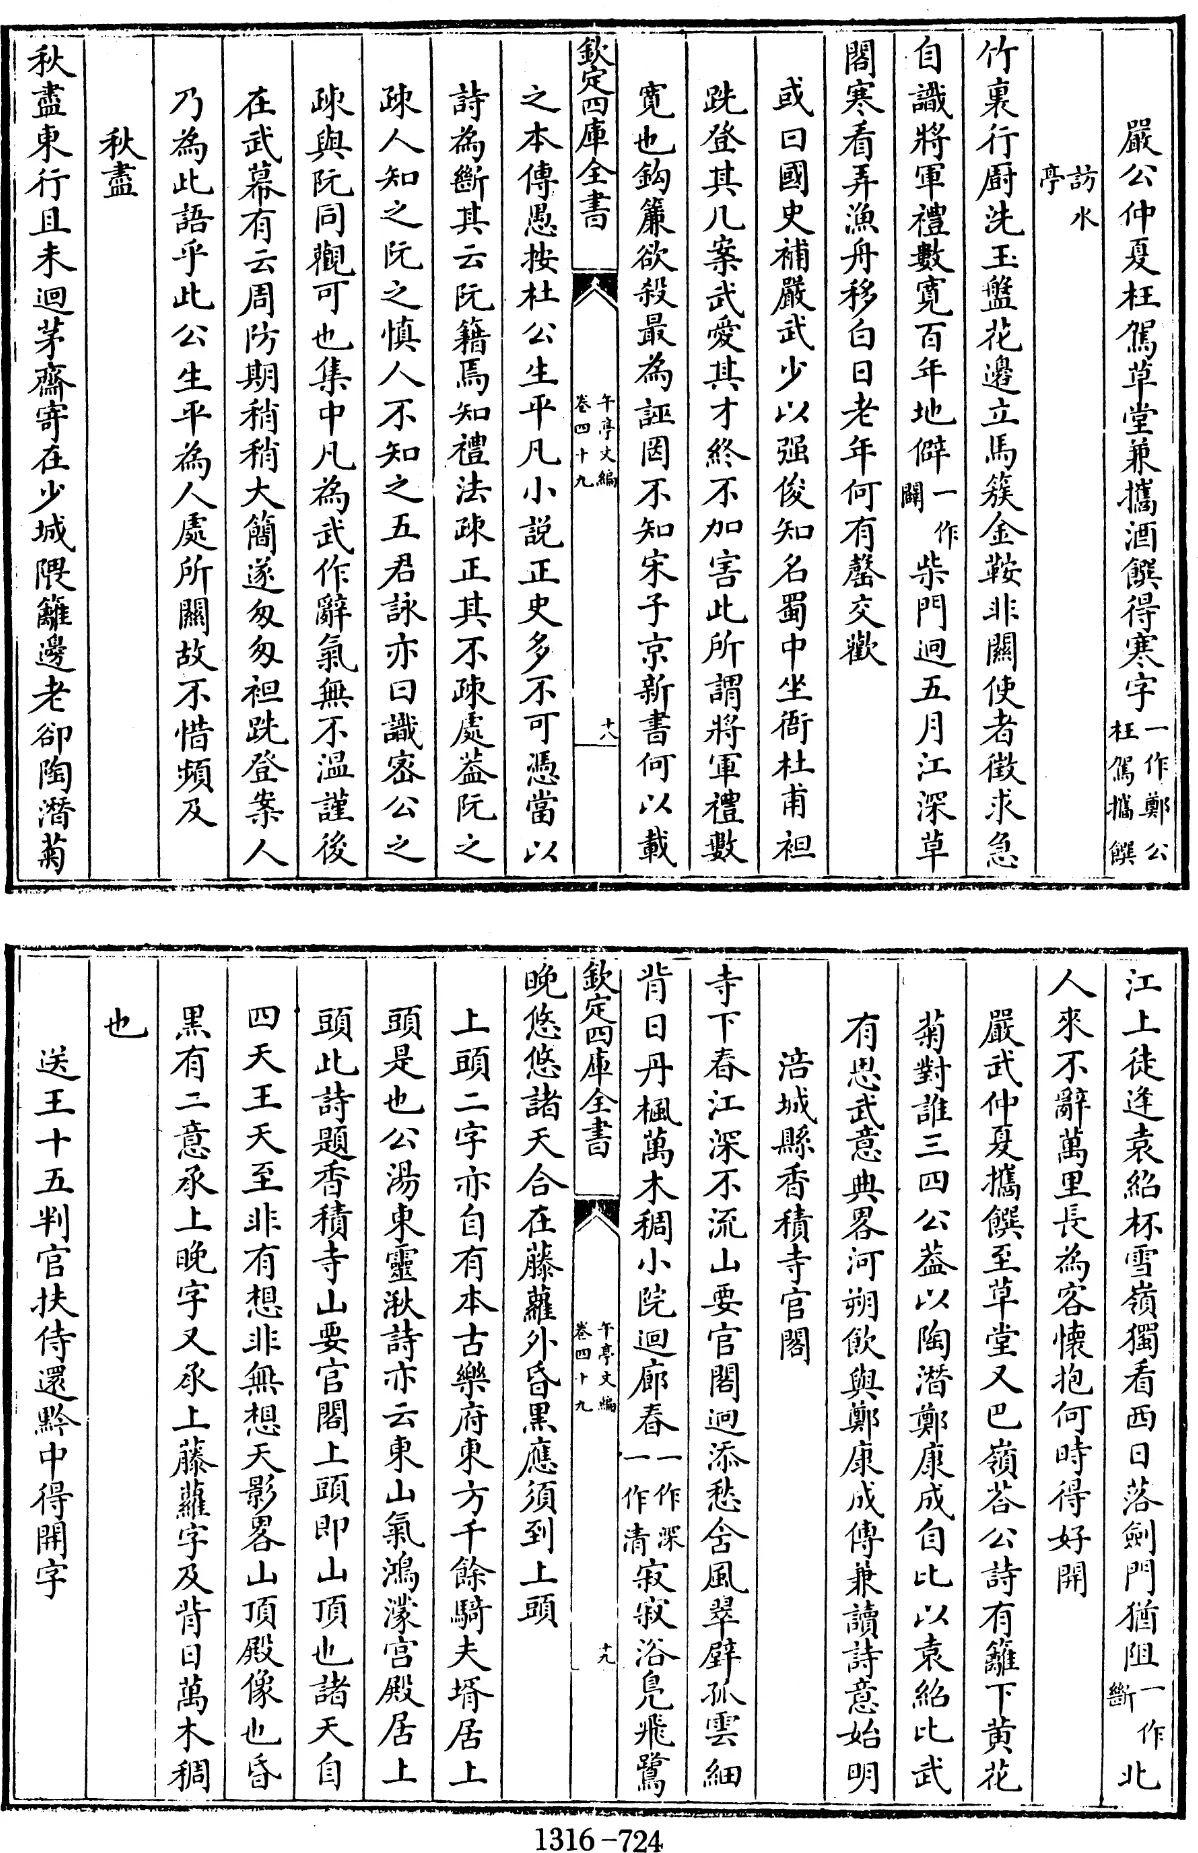 嚴公仲夏枉駕草堂兼攜酒饌得寒字一作鄭公枉駕攜饌
訪水亭
竹裏行厨洗玉盤花邊立馬簇金鞍非關使者徵求急
自識將軍禮數寛百年地僻一作闢柴門迥五月江深草
閣寒看弄漁舟移白日老年何有罄交歡
或曰國史補嚴武少以强俊知名蜀中坐衙杜甫袒
跣登其几案武愛其才終不加害此所謂將軍禮數
寛也鈎簾欲殺最為誣罔不知宋子京新書何以載
欽定四庫全書
午亭文編
卷四十九
十八
之本傳愚按杜公生平凡小説正史多不可憑當以
詩為斷其云阮籍焉知禮法疎正其不疎處葢阮之
疎人知之阮之慎人不知之五君詠亦曰識宻公之
疎與阮同觀可也集中凡為武作辭氣無不温謹後
在武幕有云周防期稍稍大簡遂匆匆袒跣登案人
乃為此語乎此公生平為人處所關故不惜頻及
秋盡
秋盡東行且未迴茅齋寄在少城隈籬邊老卻陶潛菊
江上徒逢袁紹杯雪嶺獨看西日落劍門猶阻一作斷北
人來不辭萬里長為客懷抱何時得好開
嚴武仲夏攜饌至草堂又巴嶺荅公詩有籬下黄花
菊對誰三四公葢以陶潛鄭康成自比以袁紹比武
有思武意典畧河朔飲與鄭康成傳兼讀詩意始明
涪城縣香積寺官閣
寺下春江深不流山要官閣迥添愁含風翠壁孤雲細
背日丹楓萬木稠小院迴廊春一作深一作清寂寂浴鳬飛鷺
欽定四庫全書
午亭文編
卷四十九
十九
晚悠悠諸天合在藤蘿外昏黒應須到上頭
上頭二字亦自有本古樂府東方千餘騎夫壻居上
頭是也公湯東靈湫詩亦云東山氣鴻濛宫殿居上
頭此詩題香積寺山要官閣上頭即山頂也諸天自
四天王天至非有想非無想天影畧山頂殿像也昏
黒有二意承上晚字又承上藤蘿字及背日萬木稠
也
送王十五判官扶侍還黔中得開字
1316-724